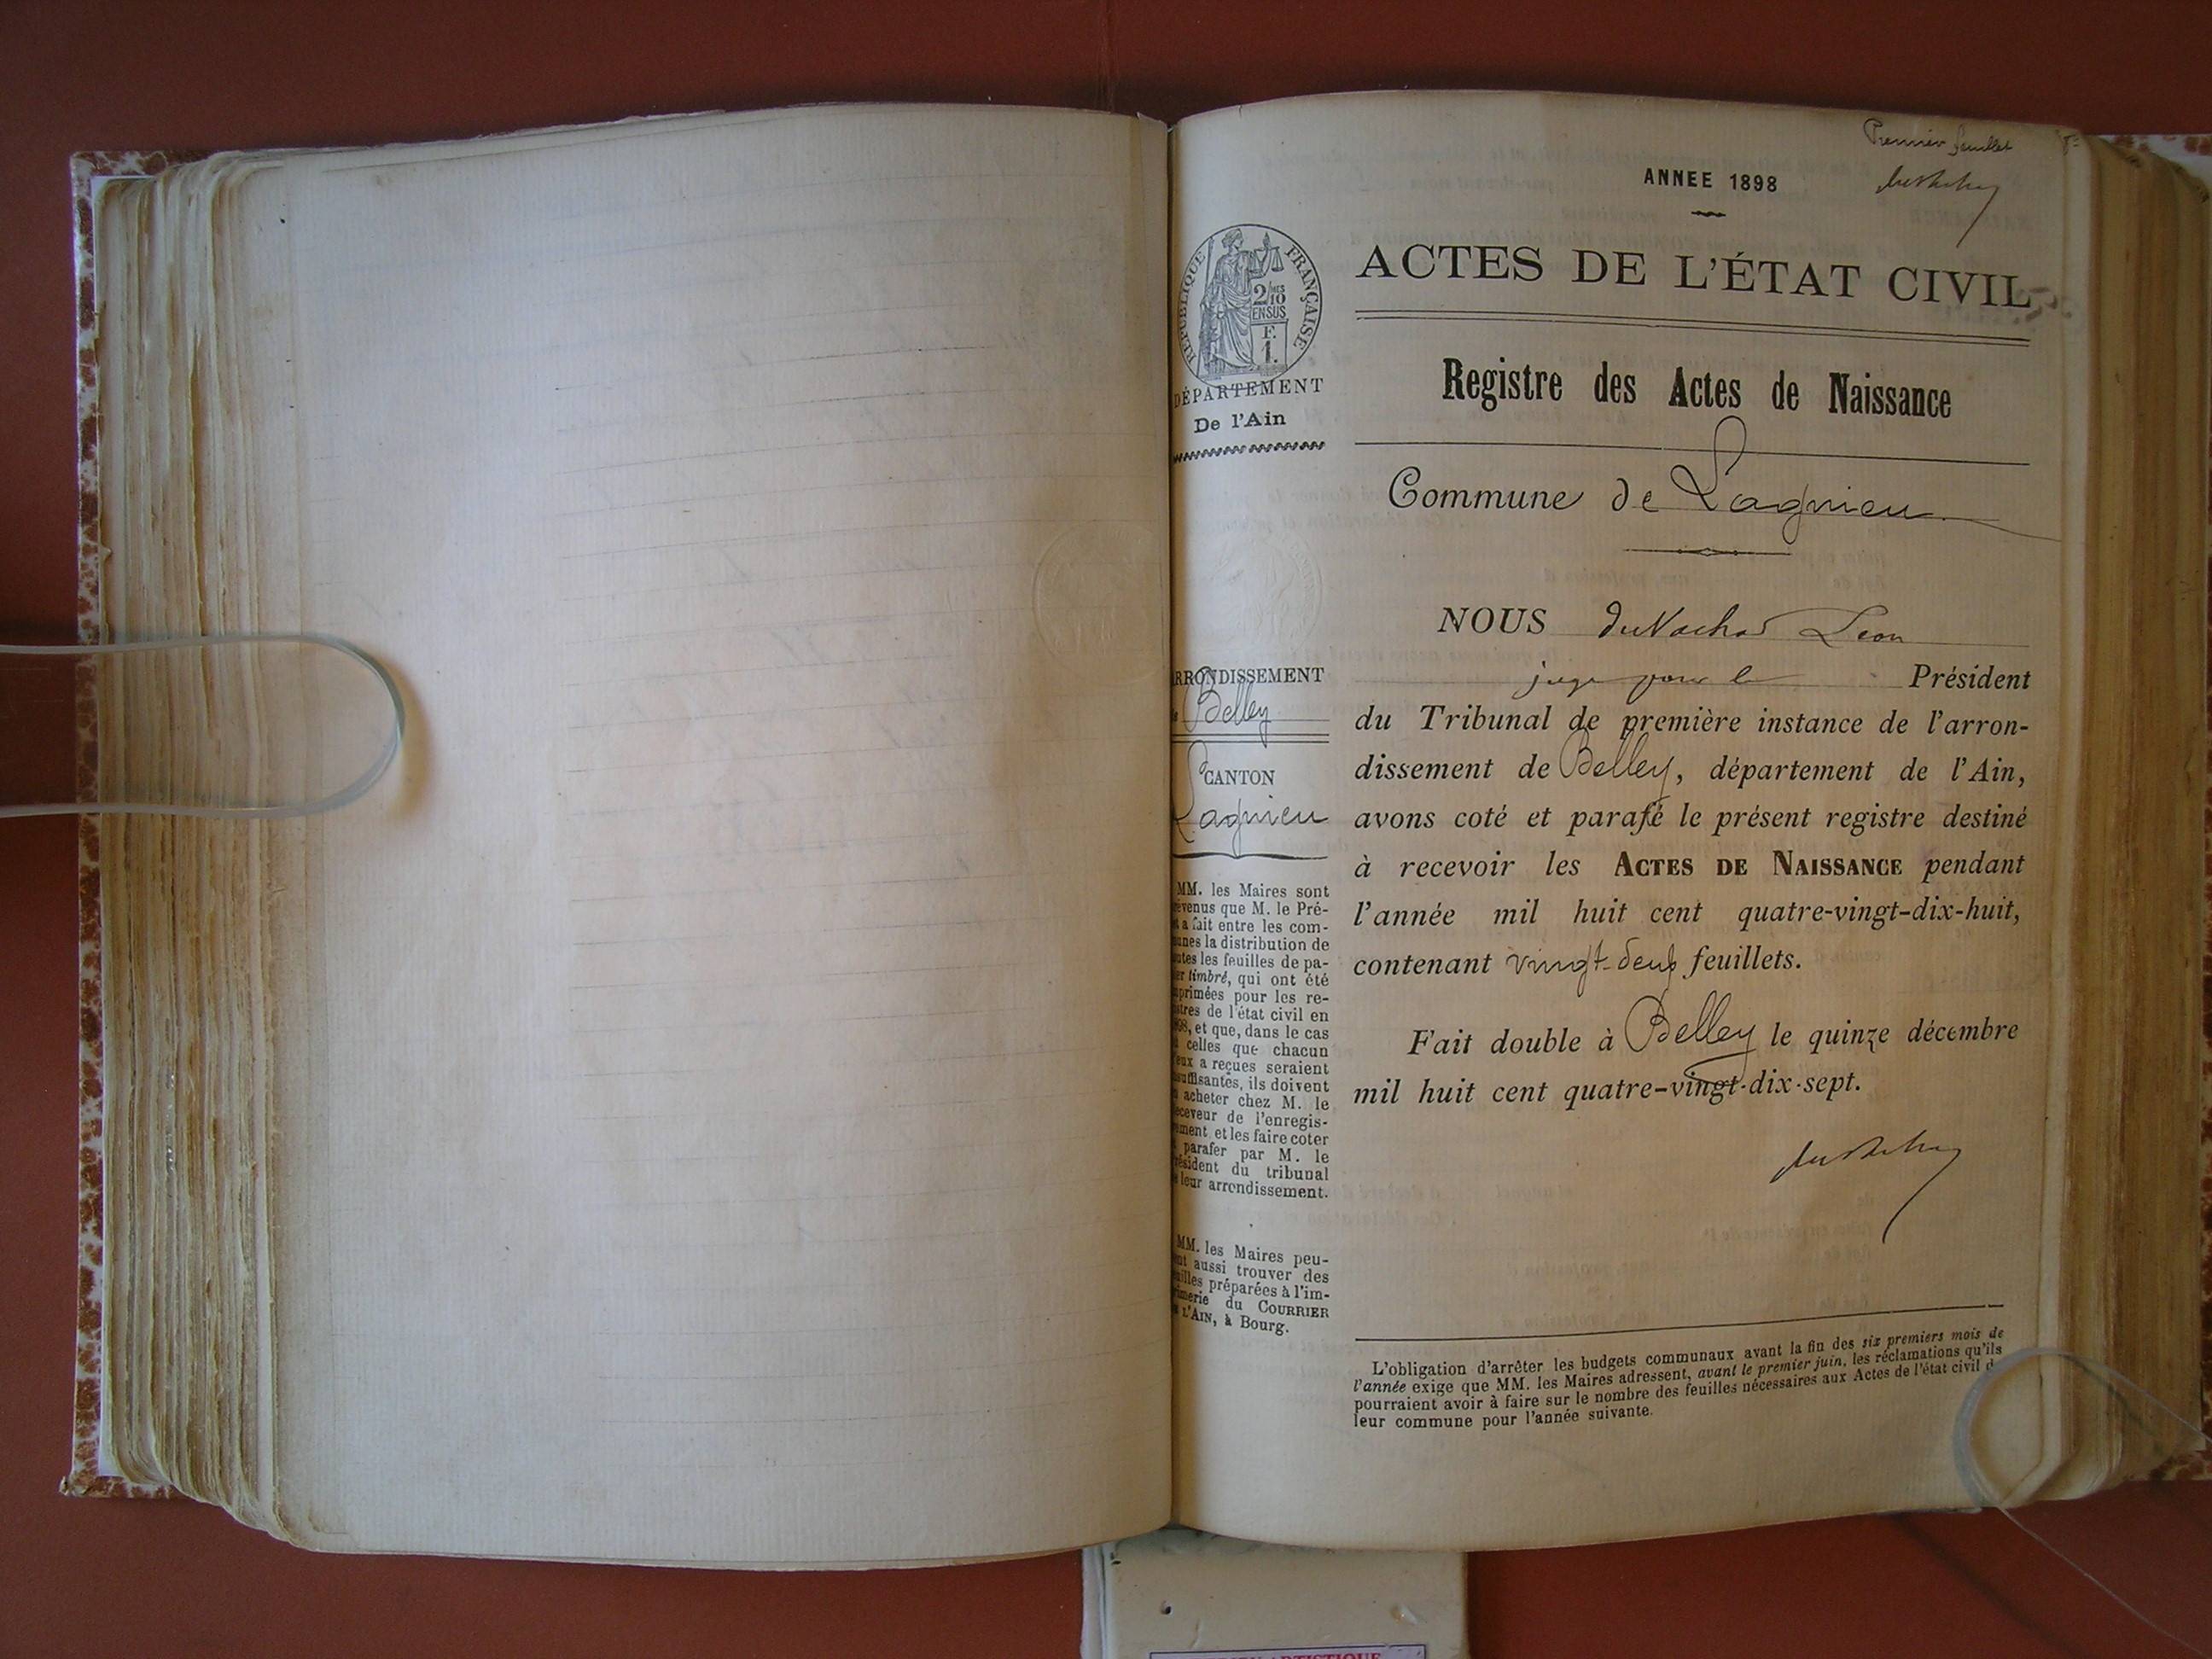 Premier feuillet
ANNEE 1898
ACTES DE L'ÉTAT CIVIL
Registre des Actes de Naissance
Commune de Lagnieu
NOUS Léon
juge pour le Président
du Tribunal de première instance de l'arron-
dissement de Belley, département de l'Ain,
avons coté et parafé le présent registre destiné
à recevoir les ACTES DE NAISSANCE pendant
l'année mil huit cent quatre-vingt-dix-huit,
contenant vingt-deux feuillets.
Fait double à Belley le quinze décembre
mil huit cent quatre-vingt-dix-sept.
L'obligation d'arrêter les budgets communaux avant la fin des six premiers mois de
l'année exige que MM. les Maires adressent, avant le premier juin, les réclamations qu'ils
pourraient avoir à faire sur le nombre des feuilles nécessaires aux Actes de l'état civil d
leur commune pour l'année suivante.
RÉPUBLIQUE FRANÇAISE
2/10 MES
EN SUS
F.
1.
DÉPARTEMENT
De l'Ain
RRONDISSEMENT
Belley
CANTON
Lagnieu
MM. les Maires sont
évenus que M. le Pré-
t a fait entre les com-
unes la distribution de
utes les feuilles de pa-
er timbré, qui ont été
mprimées pour les re-
stres de l'état civil en
98, et que, dans le cas
celles que chacun
eux a reçues seraient
suffisantes, ils doivent
acheter chez M. le
eceveur de l'enregis-
ement et les faire coter
parafer par M. le
ésident du tribunal
leur arrondissement.
MM. les Maires peu-
nt aussi trouver des
uilles préparées à l'im-
rimerie du COURRIER
L'AIN, à Bourg.
ARTISTIQUE